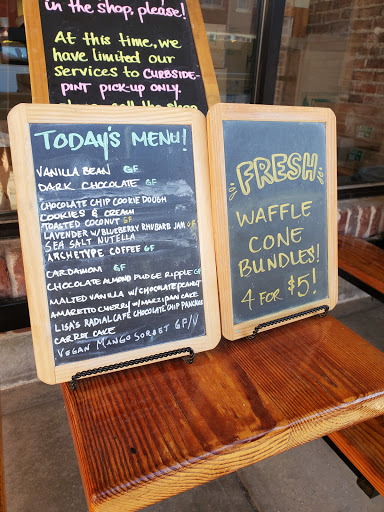 in the shop, please!
At this time, we
have limited our
services to CURBSIDE-
PINT PICK-UP ONLY.
TODAY'S MENU!
VANILLA BEAN GF
DARK CHOCOLATE GF
CHOCOLATE CHIP COOKIE DOUGH
COOKIES & CREAM
TOASTED COCONUT GF
LAVENDER W/BLUEBERRY RHUBARB JAM GF
SEA SALT NUTELLA
ARCHETYPE COFFEE GF
CARDAMOM GF
CHOCOLATE ALMOND FUDGE RIPPLE GF
MALTED VANILLA W/CHOCOLATE PEANUT
AMARETTO CHERRY W/MARZIPAN CAKE
LISA'S RADIAL CAFE CHOCOLATE CHIP PANCAKES
CARROT CAKE
VEGAN MANGO SORBET GF/V
FRESH
WAFFLE
CONE
BUNDLES!
4 FOR $5!